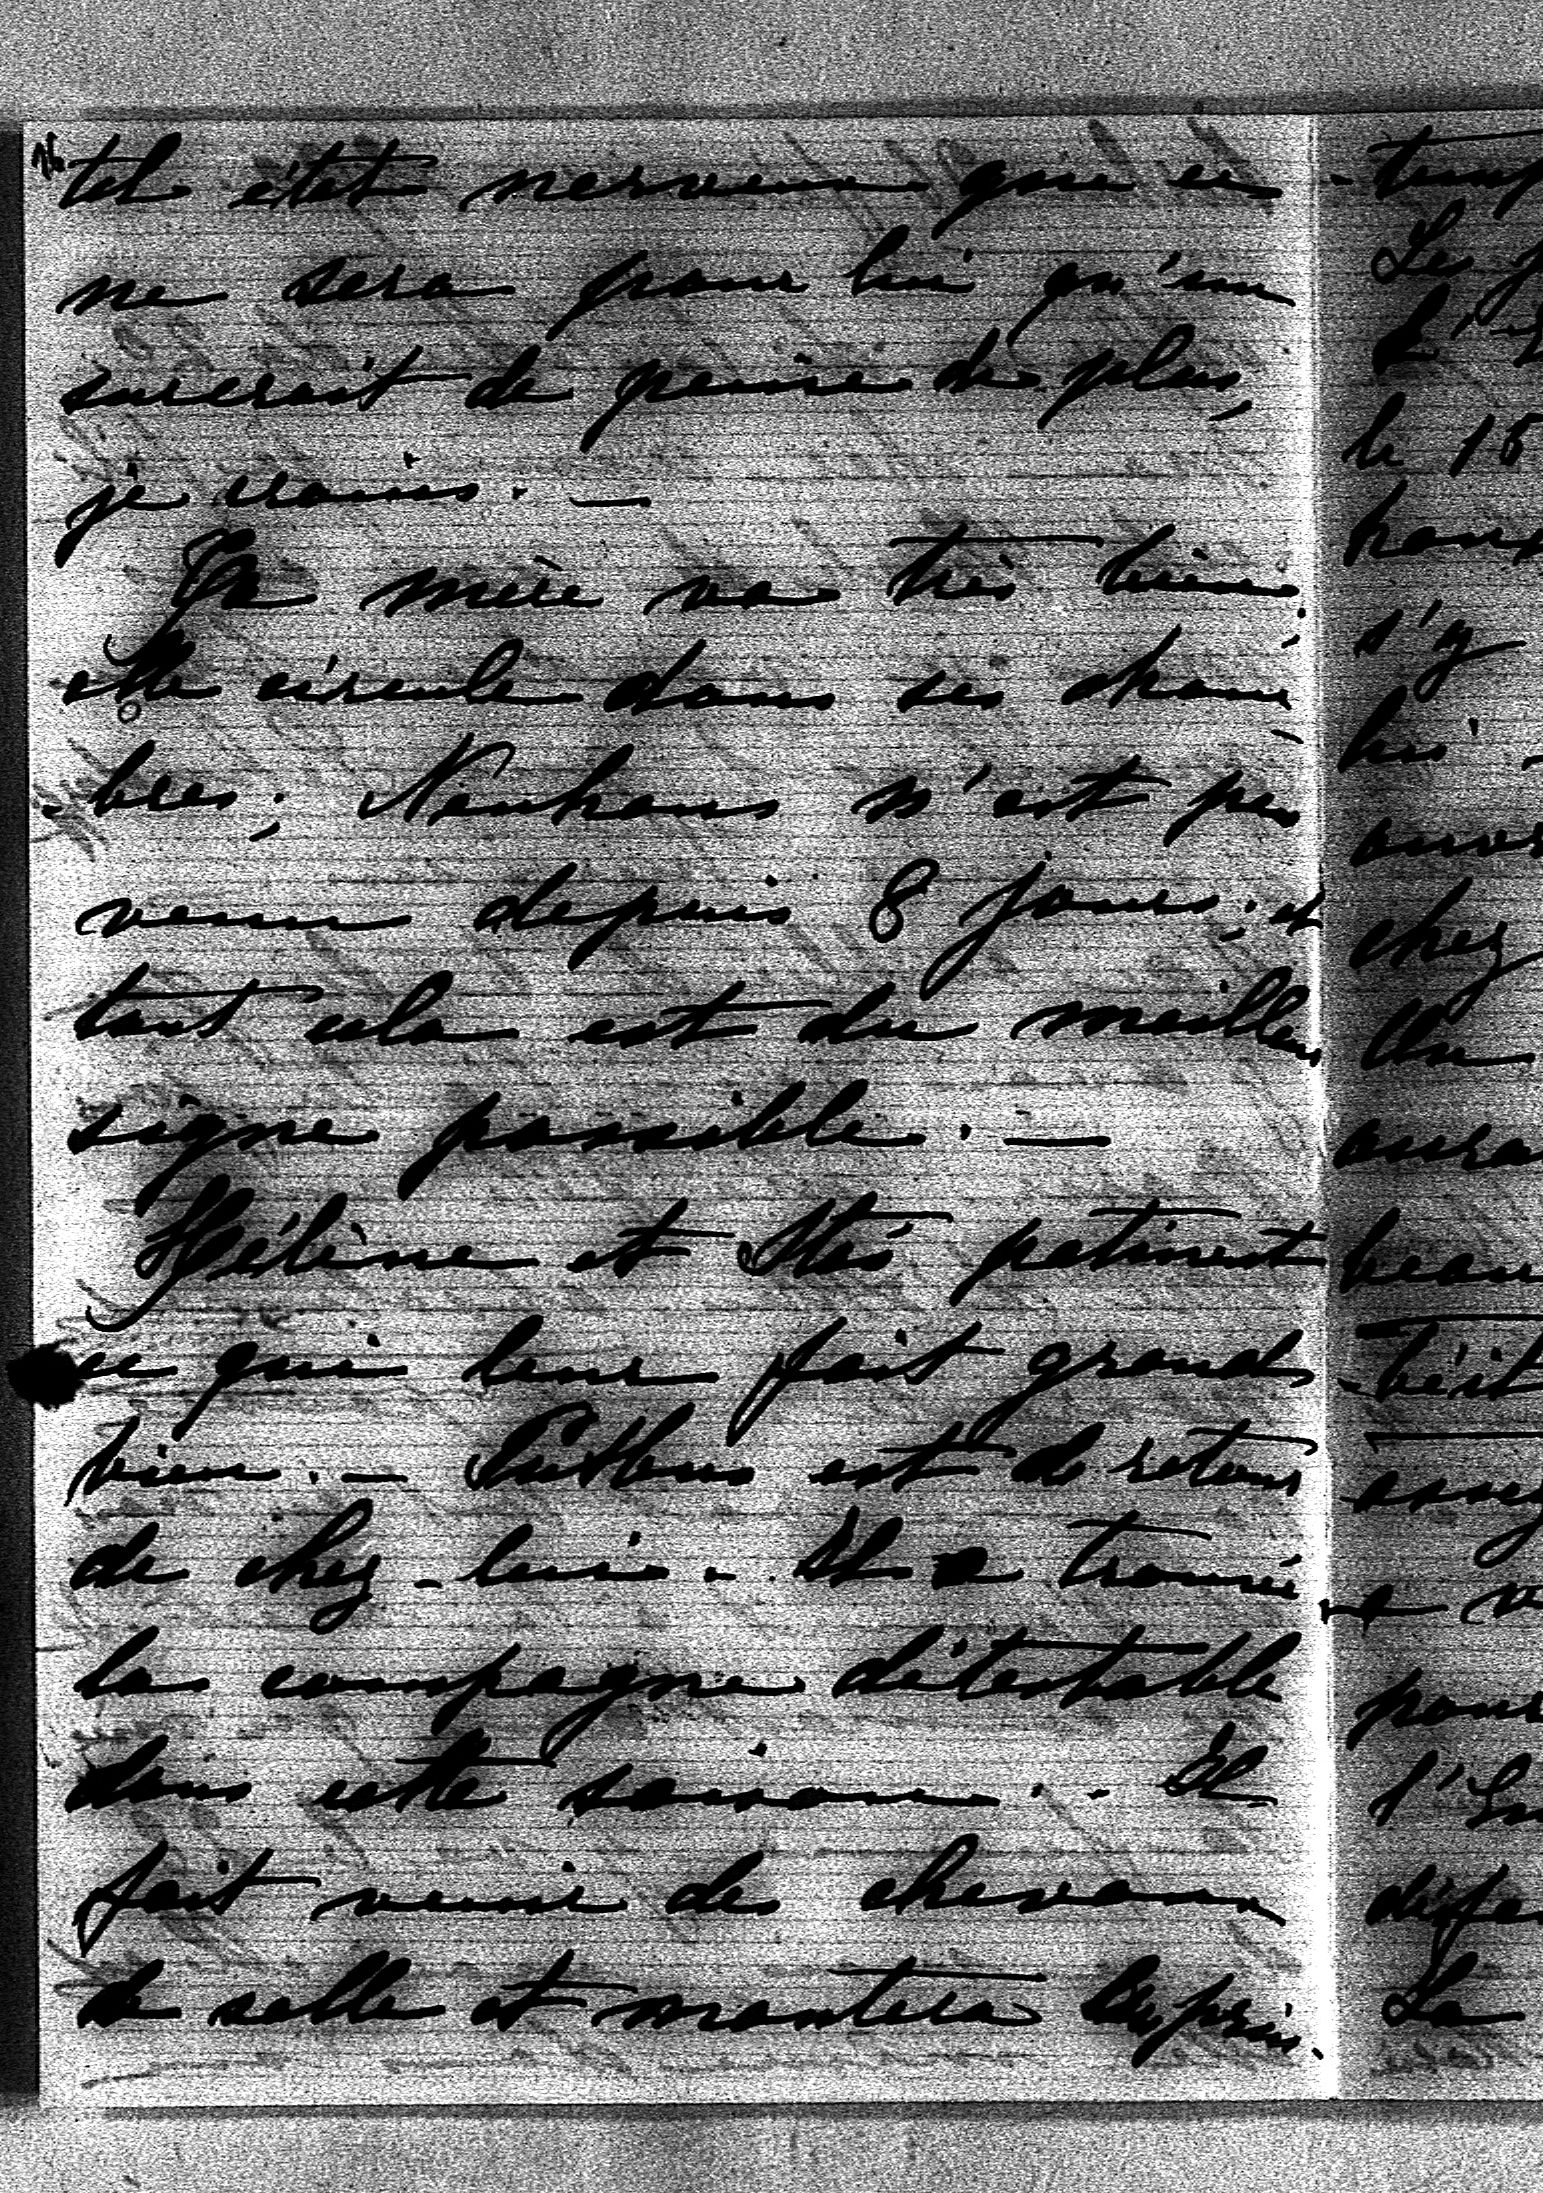 tel état nerveux que ce
ne sera pour lui qu'un
surcroît de peine de plus,
je crains. —
Ta mère va très bien.
elle circule dans ses cham-
-bres; Neuhaus n'est pas
venu depuis 8 jours; et
tout cela est du meilleur
signe possible. —
Hélène et Stas patinent
ce qui leur fait grand
bien. — Putbus est de retour
de chez-lui. Il a trouvé
la campagne détestable
dans cette saison. Il
fait venir des chevaux
de selle et montera au prin-
Les
le 15
s'y
lui
chez
Un
La